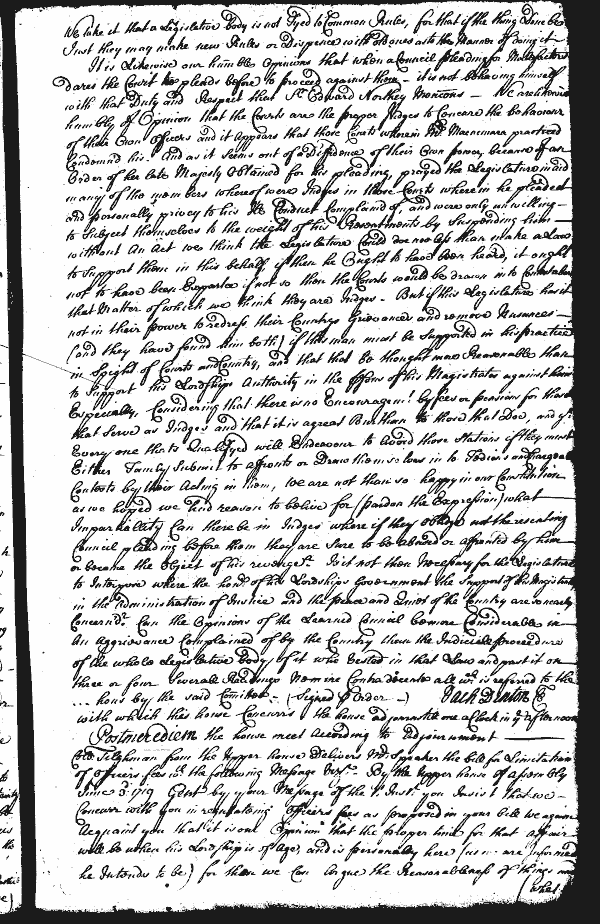 We take it that a Legislative Body is not Tyed to Common Rules, for that if the thing Done be
Just they may make new Rules or Dispence with Old ones as to the Manner of doing it
It is Likewise our humble Opinions that when a Councill pleading for Malefactors
dares the Court he pleads before to proceed against them it is not behaving himself
with that Duty and Respect that Sr. Edward Northey Mencons We are likewise
humbly of Opinion that the Courts are the proper Judges to Concern the behaviour
of their Own Officers and it appears that those Courts wherein Mr. Macnemara practiced
Condemnd his. And as it seems out of a diffidence of their Own power, because of an
Order of her late Majesty Obtained for his pleading, prayed the Legislature's aid
many of the members whereof were Judges in those Courts wherein he pleaded
and personally privy to his Conduct Complained of, and were only unwilling
to Subject themselves to the weight of his Resentments by Suspending him
without An Act we think the Legislature Could doe noe less than make a Law
to Support them in this behalf, if then he Ought to have been heard, it ought
not to have been Exparte if not so then the Courts would be drawn into
that Matter of which we think they are Judges. But if this Legislature has it
not in their power to redress their Countrys Grievances and remove Nusances
(and they have found him both) if this man must be Supported in his practice
in Spight of Courts and Country, and that that be thought more Reasonable than
to Support his Lordships Authority in the of his Magistrates against him
Especially, Considering that there is no Encouragemt. by fees or pensions for those
that Serve as Judges and that it is a great Burthen to those that Doe, and yt.
Every one thats Qualifyed will Endeavour to avoid those Stations if they must
Either Tamly Submit to affronts or Draw themselves in to Tedious and
Contests by their Acting in them, We are not then so happy in our Constitution
as we hoped we had reason to belive for (pardon the Expression) what
Imparhallity Can there be in Judges where if they oblige not the
Councill pleading before them they are Sure to be abused or affronted by him
or became the Object of his revenge. Is it not then Necessary for the Legislature
to Interpose where the honr. of his Lordships Government the Support of the Magistrates
in the Administration of Justice and the peace and Quiet of the Country are
Concernd. Can the Opinions of the Learned Councill be more Considerable in
An Aggrievance Complained of by the Country then the Judicial procedure
of the whole Legislative Body of it who Vested in that Law and past it on
three or four Severall Readings Nemine Contradicente all wch. is referred to the
hons by the said Comittee (Signed P Order) Jack Denton
with which this house Concurrs the house adjourns till one a Clock in ye afternoon
Postmeridiem the house meet According to Adjournment
Coll. Tilghman from the Upper house Delivers Mr. Speaker the bill for Limitation
of Officers fees wth the following Message Vizt. By the Upper house of Assembly
June 3. 1719 Gent. by your Message of the 1st. Inst. you Insist that we
Concurr with you in regulating Officers fees as proposed in your bill we again
Acquaint you that it is our Opinion that the proper time for that affair
will be when his Lordship is of Age, and is personally here (as we are informed
he Intends to be) for then we Can Argue the Reasonableness of things
(what